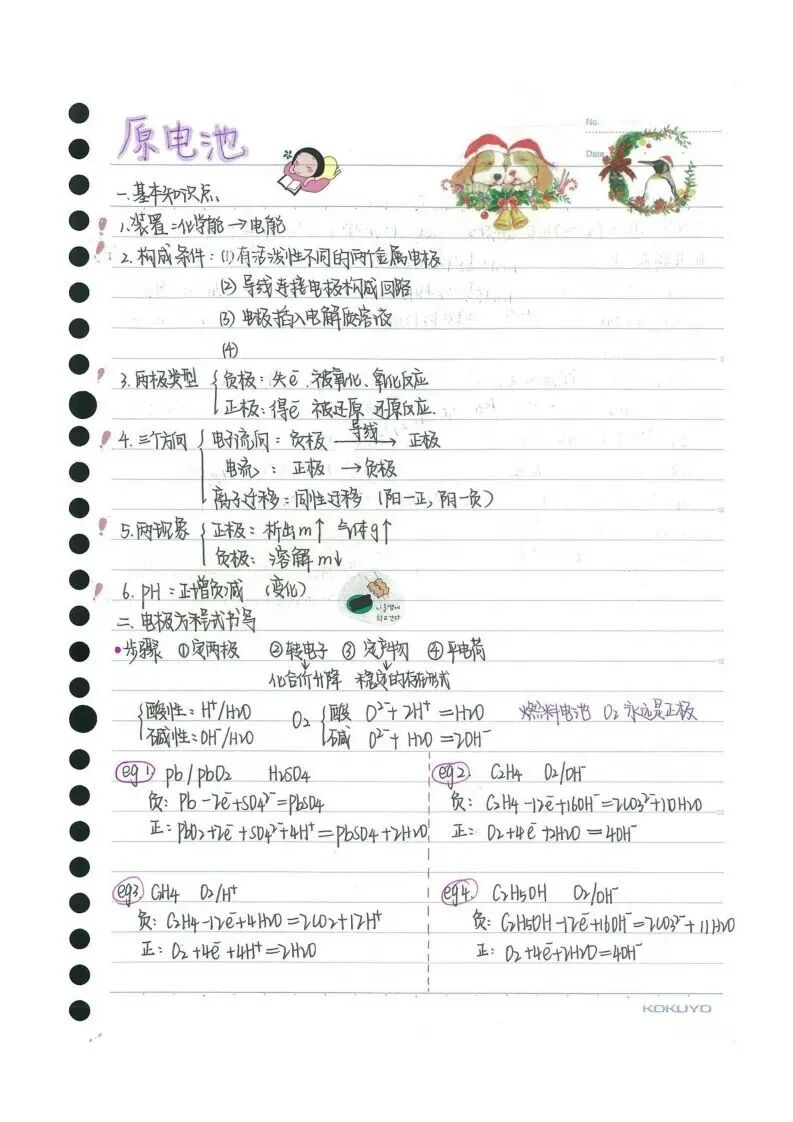 原电池
No.
Date
一.基本知识点
1.装置:化学能→电能
2.构成条件:(1)有活泼性不同的两个金属电极
(2)导线连接电极构成回路
(3)电极插入电解质溶液
(4)
3.两极类型 { 负极:失e⁻ 被氧化、氧化反应
正极:得e⁻ 被还原 还原反应.
4.三个方向 { 电子流向:负极 —导线→ 正极
电流:正极→负极
离子迁移:同性迁移(阳—正,阴—负)
5.两现象 { 正极:析出m↑ 气体g↑
负极:溶解m↓
6.pH:正增负减 (变化)
二.电极方程式书写
•步骤 ①定两极 ②转电子 ③定产物 ④平电荷
化合价升降 稳定的存在形式
{ 酸性:H⁺/H2O O2 { 酸 O²⁻+2H⁺=H2O 燃料电池 O2永远是正极
碱性:OH⁻/H2O 碱 O²⁻+H2O=2OH⁻
eg1. Pb/PbO2 H2SO4
负:Pb-2e⁻+SO4²⁻=PbSO4
正:PbO2+2e⁻+SO4²⁻+4H⁺=PbSO4+2H2O
eg2. C2H4 O2/OH⁻
负:C2H4-12e⁻+16OH⁻=2CO3²⁻+10H2O
正:O2+4e⁻+2H2O=4OH⁻
eg3. C2H4 O2/H⁺
负:C2H4-12e⁻+4H2O=2CO2+12H⁺
正:O2+4e⁻+4H⁺=2H2O
eg4. C2H5OH O2/OH⁻
负:C2H5OH-12e⁻+16OH⁻=2CO3²⁻+11H2O
正:O2+4e⁻+2H2O=4OH⁻
KOKUYO